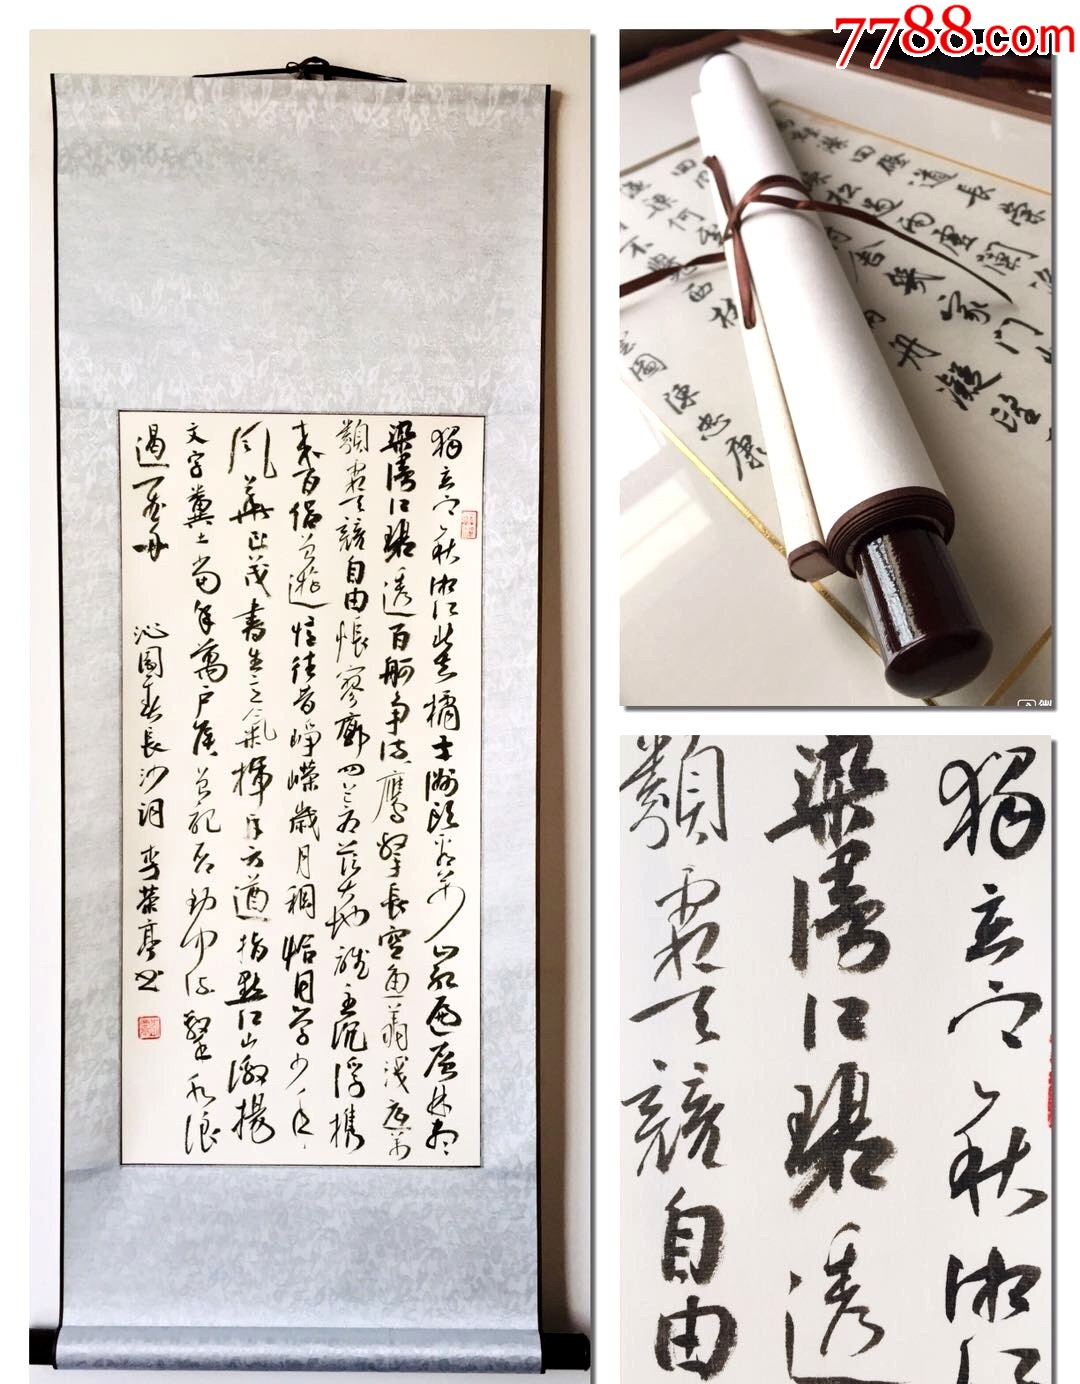 7788.com
獨立寒秋湘江北去橘子洲頭看萬山紅遍層林盡
染漫江碧透百舸争流鷹擊長空魚翔淺底萬
類霜天競自由悵寥廓問蒼茫大地誰主沉浮攜
来百侣曾遊憶往昔崢嶸歲月稠恰同學少年
風華正茂書生意氣揮斥方遒指點江山激揚
文字糞土當年萬户侯曾記否到中流擊水浪
遏飛舟 沁園春長沙詞 李榮亭書
陳忠康
獨立寒秋湘江
染漫江碧透
類霜天競自由